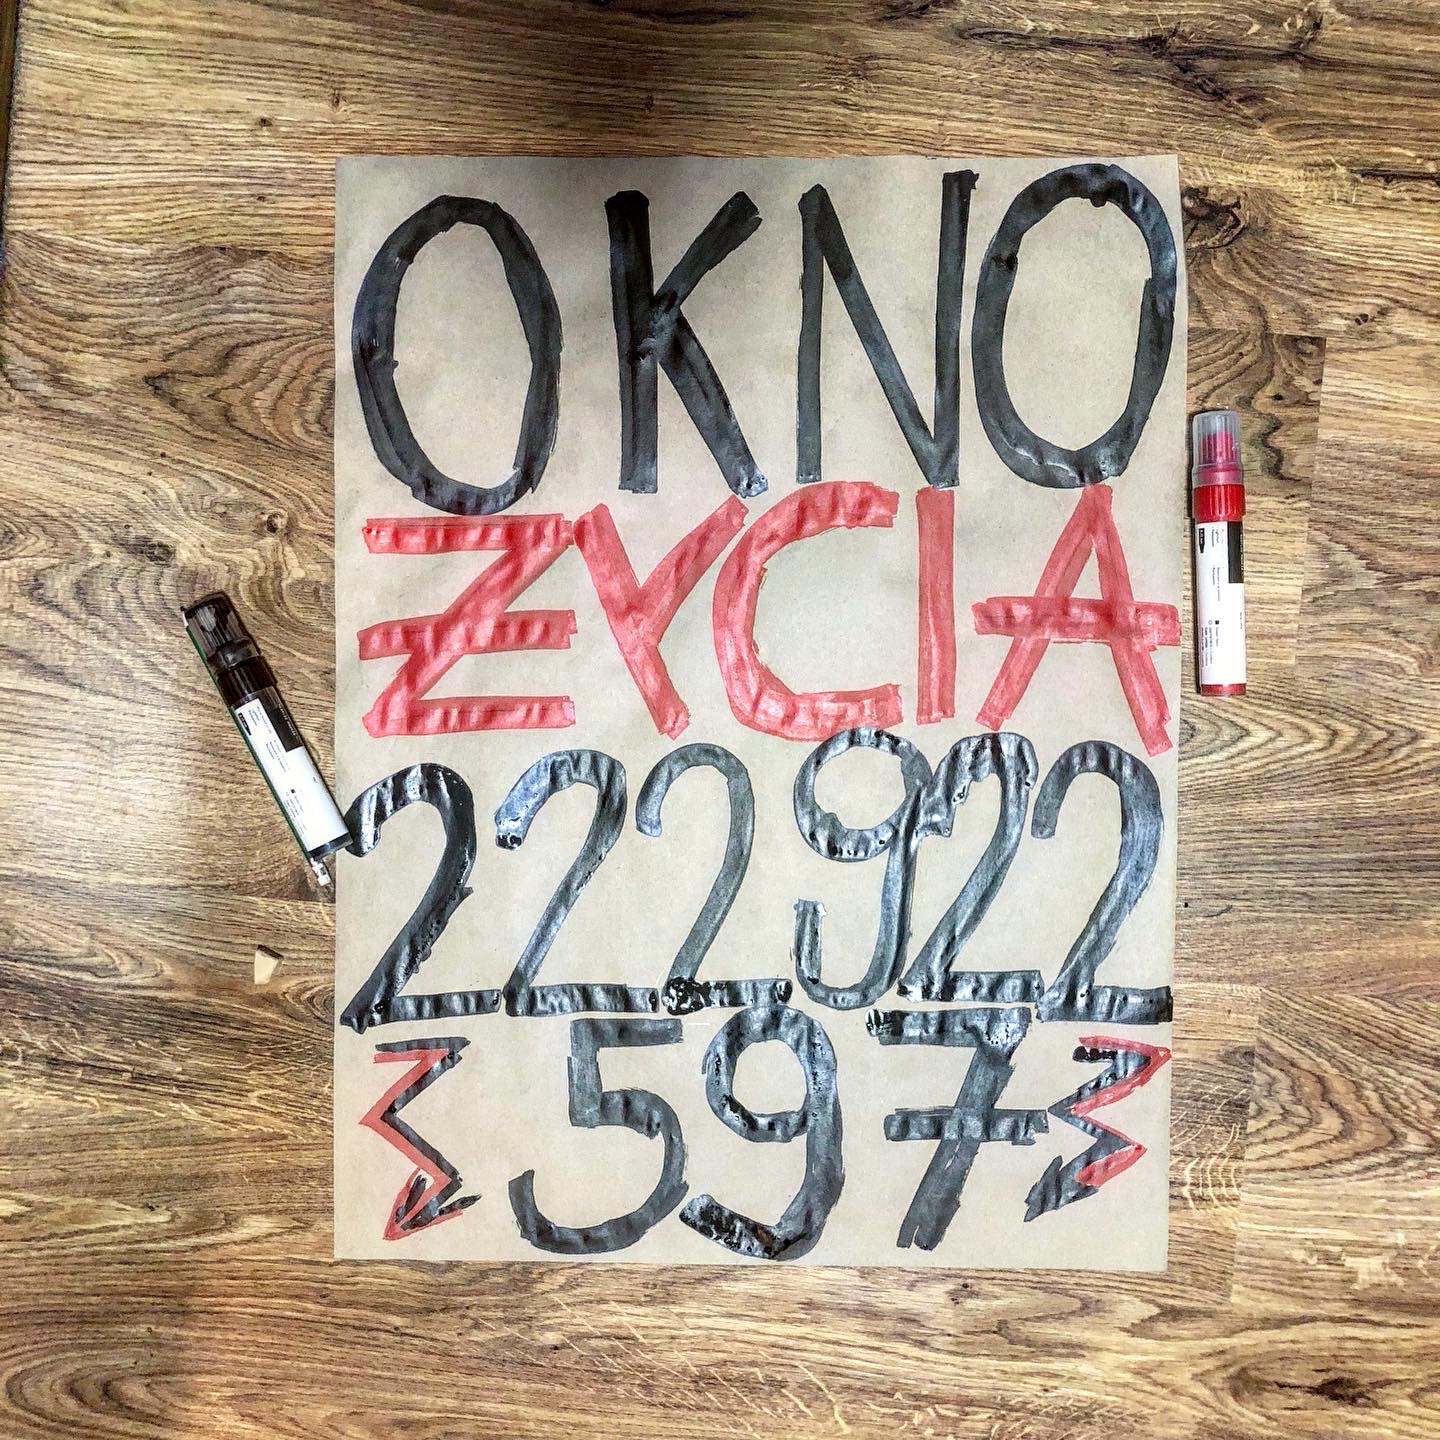 OKNO
ƵYCIA
222 922
597